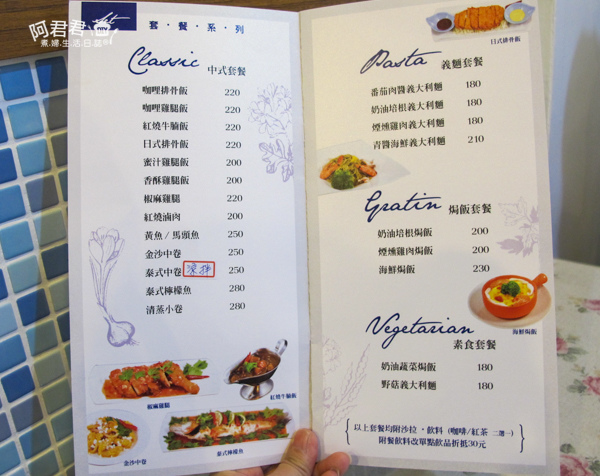 阿君君
煮.婦.生.活.日.誌
套・餐・系・列
Classic 中式套餐
咖哩排骨飯 220
咖哩雞腿飯 220
紅燒牛腩飯 220
日式排骨飯 220
蜜汁雞腿飯 200
香酥雞腿飯 200
椒麻雞腿 220
紅燒滷肉 200
黃魚/馬頭魚 250
金沙中卷 250
泰式中卷 涼拌 250
泰式檸檬魚 280
清蒸小卷 280
椒麻雞腿
紅燒牛腩飯
金沙中卷
泰式檸檬魚
日式排骨飯
Pasta 義麵套餐
番茄肉醬義大利麵 180
奶油培根義大利麵 180
煙燻雞肉義大利麵 180
青醬海鮮義大利麵 210
Gratin 焗飯套餐
奶油培根焗飯 200
煙燻雞肉焗飯 200
海鮮焗飯 230
海鮮焗飯
Vegetarian
素食套餐
奶油蔬菜焗飯 180
野菇義大利麵 180
以上套餐均附沙拉,飲料(咖啡/紅茶 二選一)
附餐飲料改單點飲品折抵30元